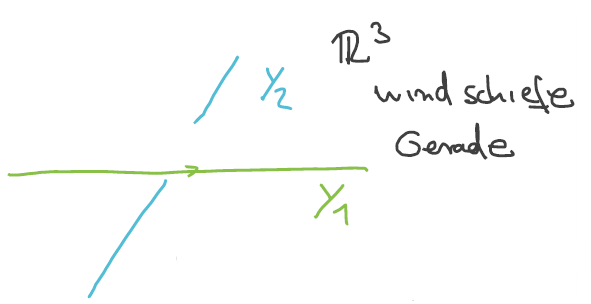 ℝ³
Y₂
windschiefe
Gerade
Y₁